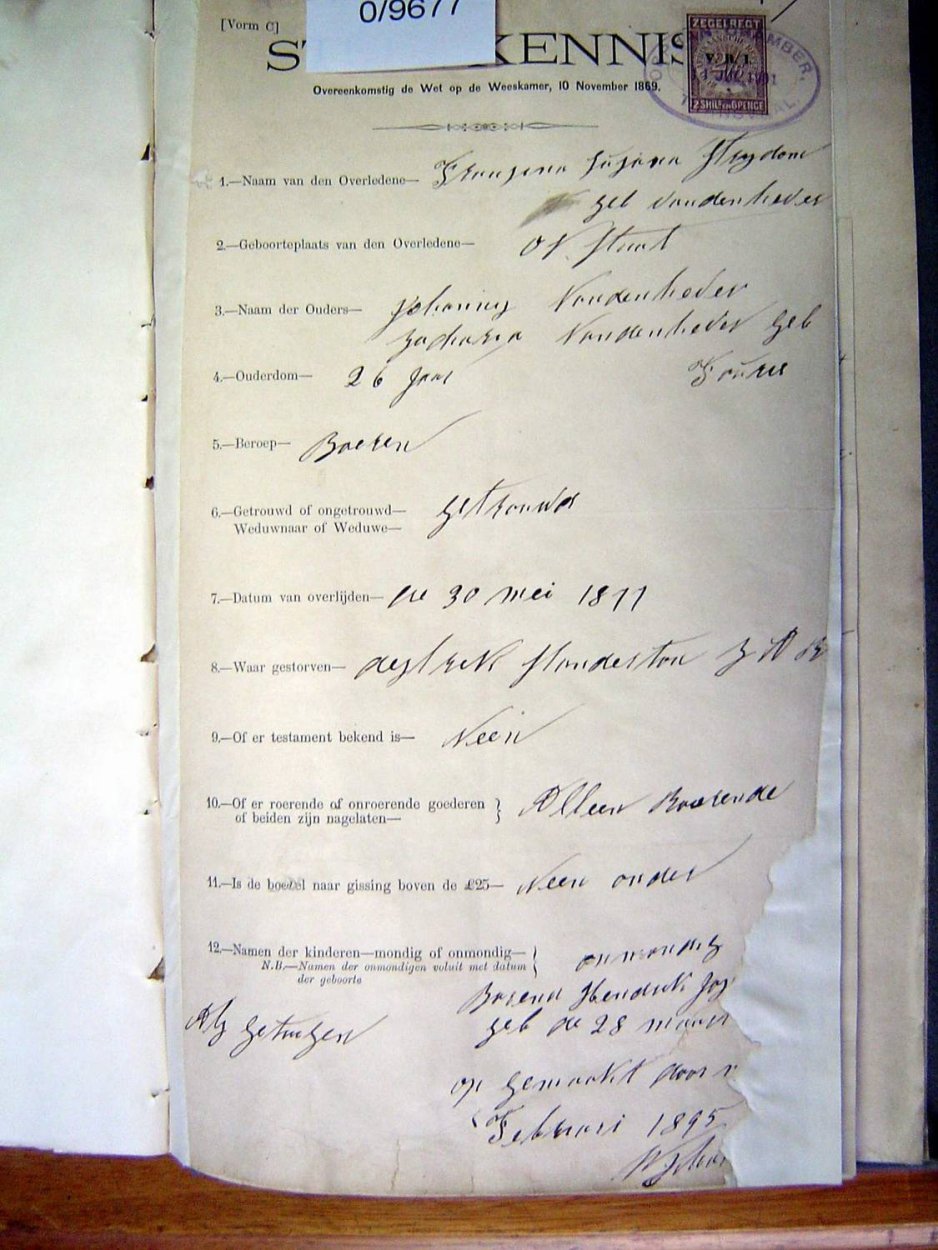 0/9677
[Vorm C]
KENNIS
Overeenkomstig de Wet op de Weeskamer, 10 November 1869.
ZEGELREGT
V.R.I.
1.—Naam van den Overledene— Susara Strydom
geb vandenhever
2.—Geboorteplaats van den Overledene— O V. Staat
3.—Naam der Ouders— Johannes Vandenhever
Vandenhever geb
4.—Ouderdom— 26 Jaar Fourie
5.—Beroep— Boeren
6.—Getrouwd of ongetrouwd— getrouwd
Weduwnaar of Weduwe—
7.—Datum van overlijden— de 30 mei
8.—Waar gestorven— Standerton Z A R
9.—Of er testament bekend is— Neen
10.—Of er roerende of onroerende goederen } Alleen Roerende
of beiden zijn nagelaten—
11.—Is de boedel naar gissing boven de £25— Neen onder
12.—Namen der kinderen—mondig of onmondig— } onmondig
N.B.—Namen der onmondigen voluit met datum
der geboorte
Barend Hendrik
geb de 28
Als getuigen
op gemaakt door
Februari 1895